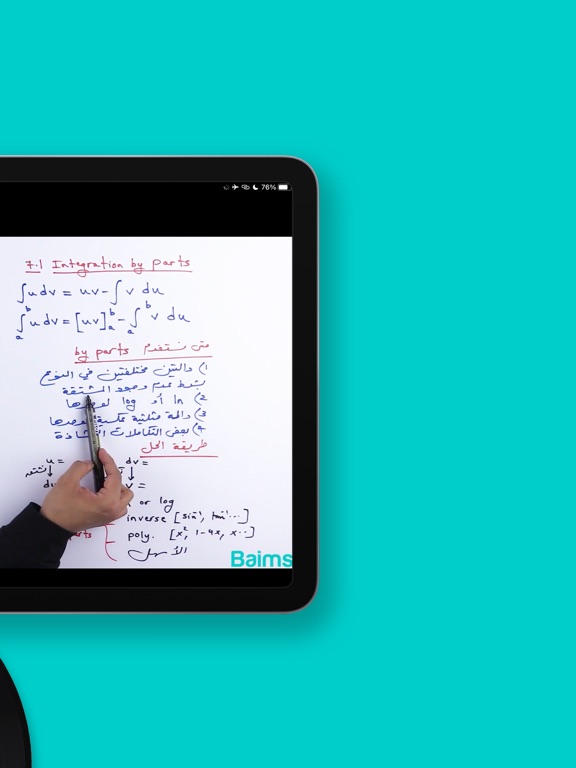 76%
7.1 Integration by parts
∫u dv = uv - ∫ v du
∫ₐᵇ u dv = [uv]ₐᵇ - ∫ₐᵇ v du
متى نستخدم by parts
1) دالتين مختلفتين في النوع
بشرط عدم وجود المشتقة
2) ln أو log لوحدها
3) دالة مثلثية عكسية لوحدها
4) بعض التكاملات الشاذة
طريقة الحل
u = dv =
نشتق
v =
or log
inverse [sin⁻¹, tan⁻¹...]
poly. [x², 1-4x, x..]
الأسهل
Baims